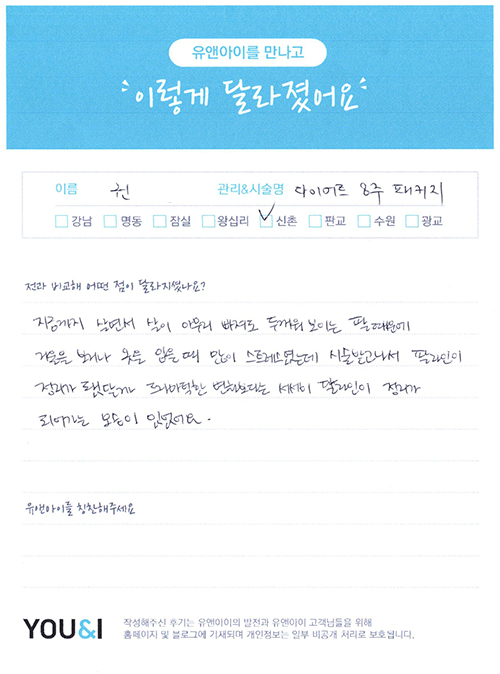 유앤아이를 만나고
이렇게 달라졌어요
이름 권 관리&시술명 다이어트 8주 패키지
강남 명동 잠실 왕십리 신촌 판교 수원 광교
전과 비교해 어떤 점이 달라지셨나요?
지금까지 살면서 살이 아무리 빠져도 두꺼워 보이는 팔때문에
거울을 보거나 옷을 입을 때 많이 스트레스였는데 시술받고나서 팔라인이
정리가 됐달까 드라마틱한 변화보다는 서서히 팔라인이 정리가
되어가는 모습이 있었어요.
유앤아이를 칭찬해주세요
YOU&I
작성해주신 후기는 유앤아이의 발전과 유앤아이 고객님들을 위해
홈페이지 및 블로그에 기재되며 개인정보는 일부 비공개 처리로 보호됩니다.